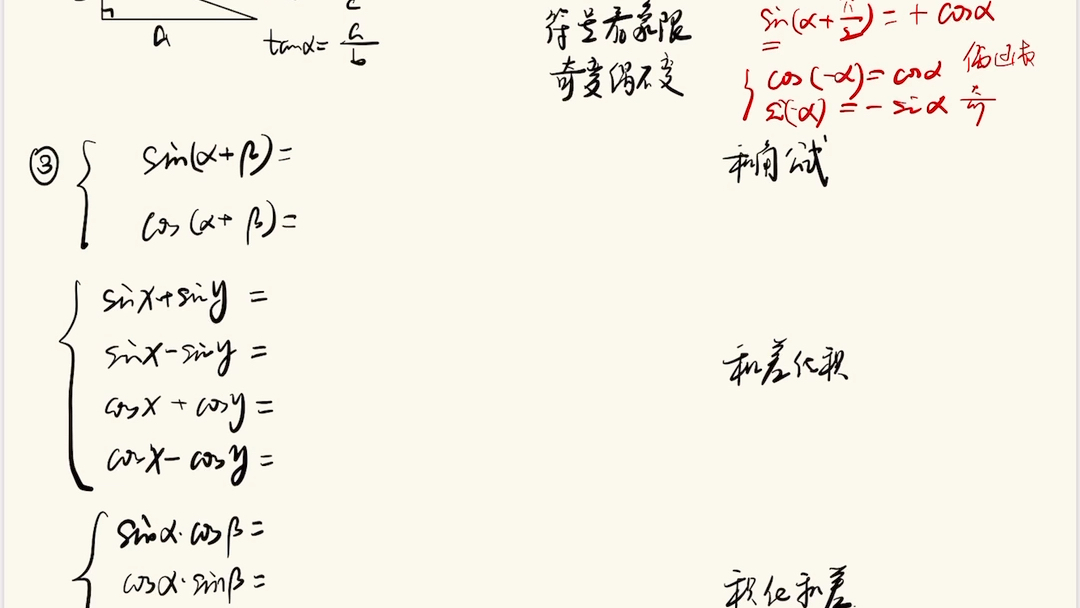 a
tanα = a/b
符号看象限
奇变偶不变
sin(α+π/2) = + cosα
cos(-α) = cosα
sin(-α) = - sinα 奇
③ sin(α+β)=
cos(α+β)=
和角公式
sinx+siny =
sinx-siny =
cosx + cosy =
cosx - cosy =
和差化积
sinα·cosβ =
cosα·sinβ =
积化和差